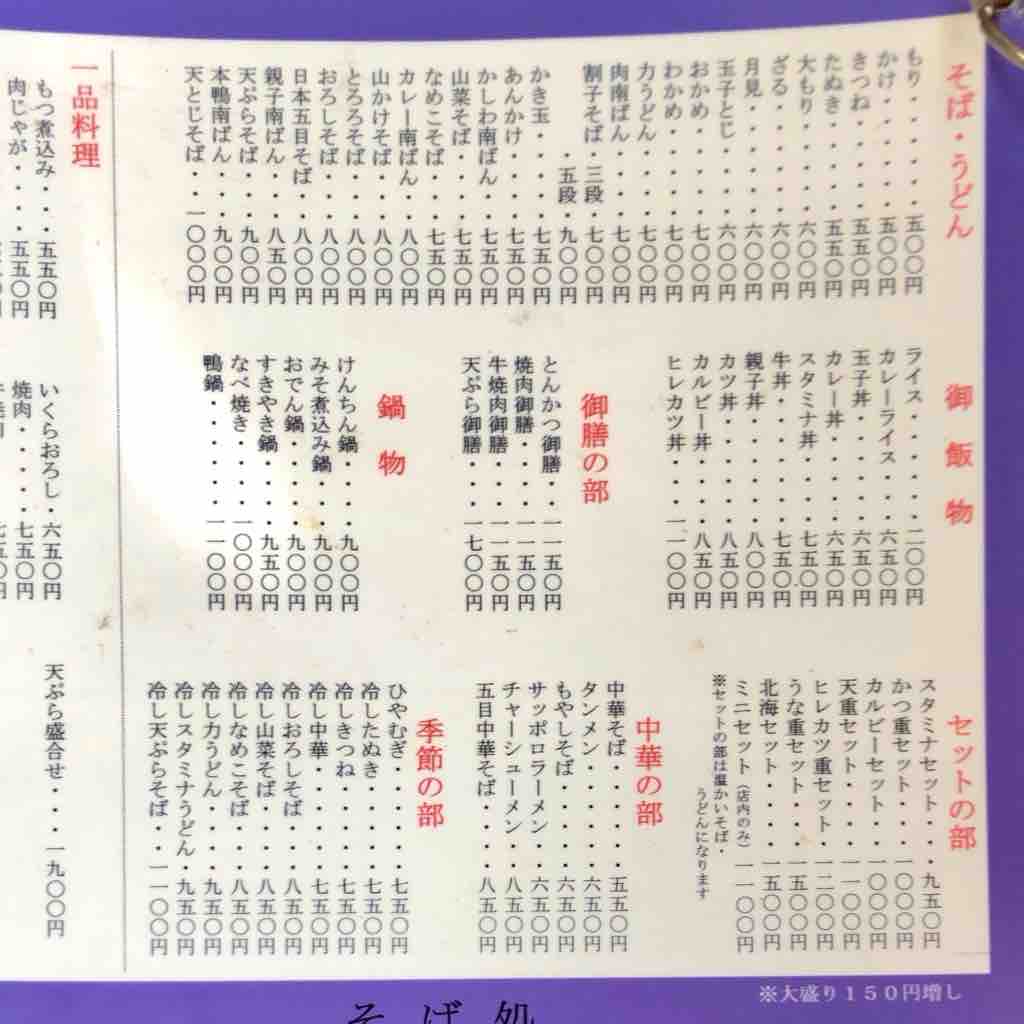 そば・うどん
もり・・・・・・五〇〇円
かけ・・・・・・五〇〇円
きつね・・・・・五五〇円
たぬき・・・・・五五〇円
大もり・・・・・六〇〇円
ざる・・・・・・六〇〇円
月見・・・・・・六〇〇円
玉子とじ・・・・六〇〇円
おかめ・・・・・七〇〇円
わかめ・・・・・七〇〇円
力うどん・・・・七〇〇円
肉南ばん・・・・七〇〇円
割子そば・三段・七〇〇円
・五段・九〇〇円
かき玉・・・・・七五〇円
あんかけ・・・・七五〇円
かしわ南ばん・・七五〇円
山菜そば・・・・七五〇円
なめこそば・・・七五〇円
カレー南ばん・・八〇〇円
山かけそば・・・八〇〇円
とろろそば・・・八〇〇円
おろしそば・・・八〇〇円
日本五目そば・・八〇〇円
親子南ばん・・・八五〇円
天ぷらそば・・・九〇〇円
本鴨南ばん・・・九〇〇円
天とじそば・・一〇〇〇円
御飯物
ライス・・・・・二〇〇円
カレーライス・・六五〇円
玉子丼・・・・・六五〇円
カレー丼・・・・六五〇円
スタミナ丼・・・七五〇円
牛丼・・・・・・七五〇円
親子丼・・・・・八〇〇円
カツ丼・・・・・八五〇円
カルビー丼・・・八五〇円
ヒレカツ丼・・一一〇〇円
御膳の部
とんかつ御膳・・一一五〇円
焼肉御膳・・・一一五〇円
牛焼肉御膳・・一一五〇円
天ぷら御膳・・一七〇〇円
鍋物
けんちん鍋・・・九〇〇円
みそ煮込み鍋・・九〇〇円
おでん鍋・・・・九〇〇円
すきやき鍋・・・九五〇円
なべ焼き・・・一〇〇〇円
鴨鍋・・・・・一一〇〇円
セットの部
スタミナセット・・九五〇円
かつ重セット・・・一〇〇〇円
カルビーセット・・一〇〇〇円
天重セット・・・・一一〇〇円
ヒレカツ重セット・一二〇〇円
うな重セット・・・一五〇〇円
北海セット・・・・一五〇〇円
ミニセット(店内のみ)一一〇〇円
※セットの部は温かいそば・
うどんになります
中華の部
中華そば・・・・・五五〇円
タンメン・・・・・六五〇円
もやしそば・・・・六五〇円
サッポロラーメン・六五〇円
チャーシューメン・八五〇円
五目中華そば・・・八五〇円
季節の部
ひやむぎ・・・・・七五〇円
冷したぬき・・・・七五〇円
冷しきつね・・・・七五〇円
冷し中華・・・・・七五〇円
冷しおろしそば・・八五〇円
冷し山菜そば・・・八五〇円
冷しなめこそば・・八五〇円
冷し力うどん・・・九五〇円
冷しスタミナうどん・九五〇円
冷し天ぷらそば・・一一〇〇円
一品料理
もつ煮込み・・・五五〇円
肉じゃが・・・・五五〇円
いくらおろし・六五〇円
焼肉・・・・・七五〇円
天ぷら盛合せ・・・一九〇〇円
※大盛り150円増し
そば処